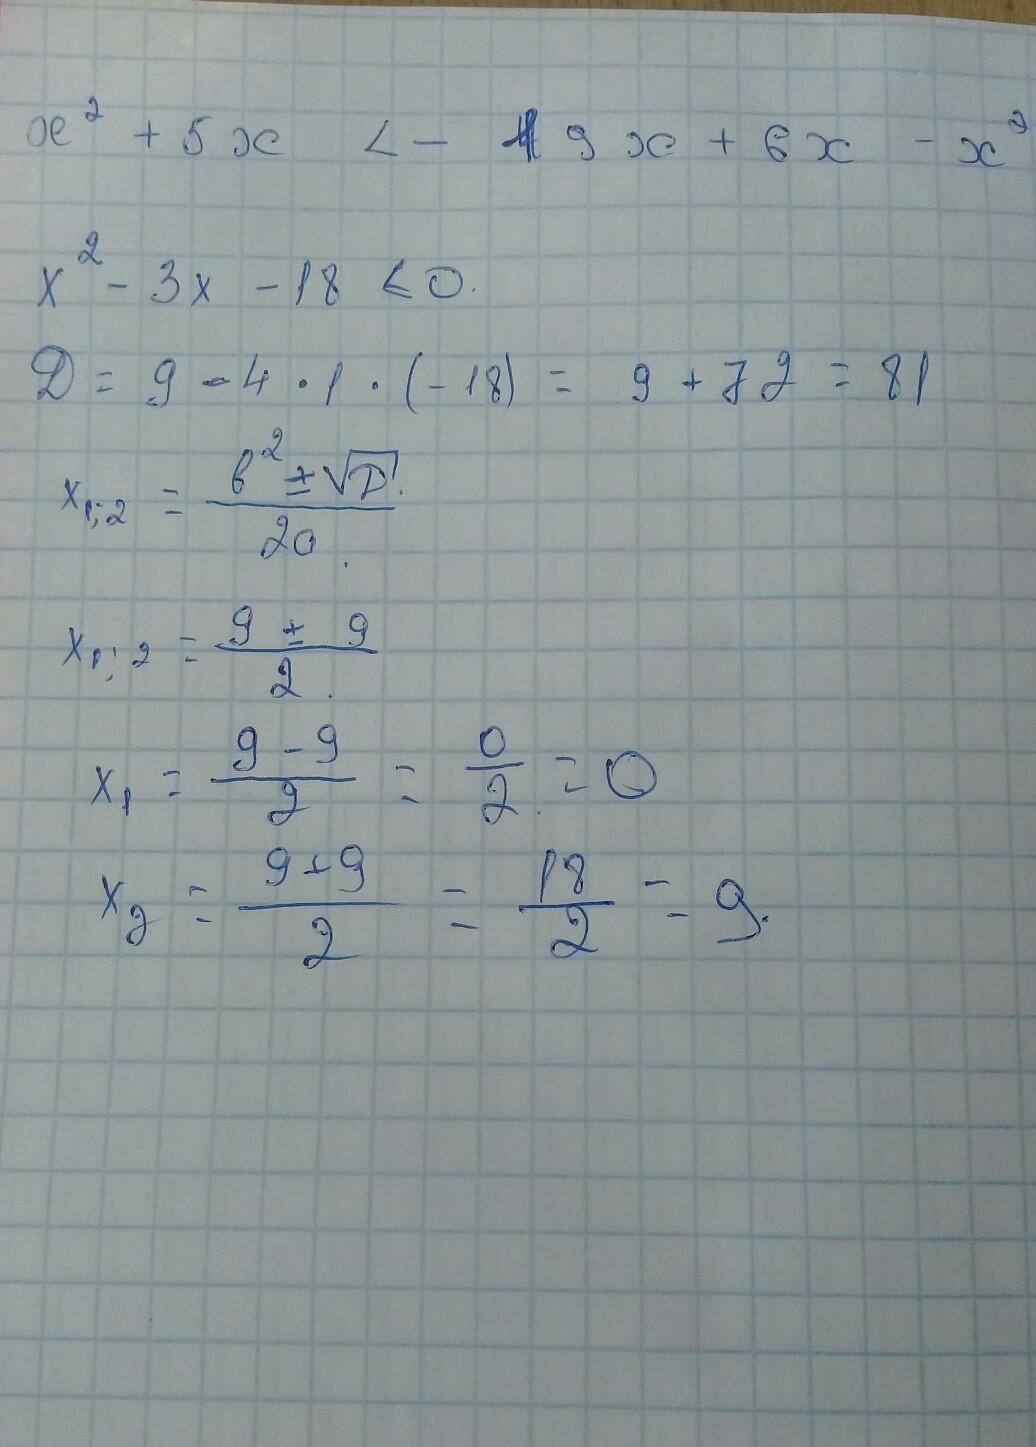 x² + 5x < - 9x + 6x - x²
x² - 3x - 18 < 0.
D = 9 - 4 · 1 · (-18) = 9 + 72 = 81
x₁;₂ = (b² ± √D) / 2a
x₁;₂ = (9 ± 9) / 2
x₁ = (9 - 9) / 2 = 0 / 2 = 0
x₂ = (9 + 9) / 2 = 18 / 2 = 9.